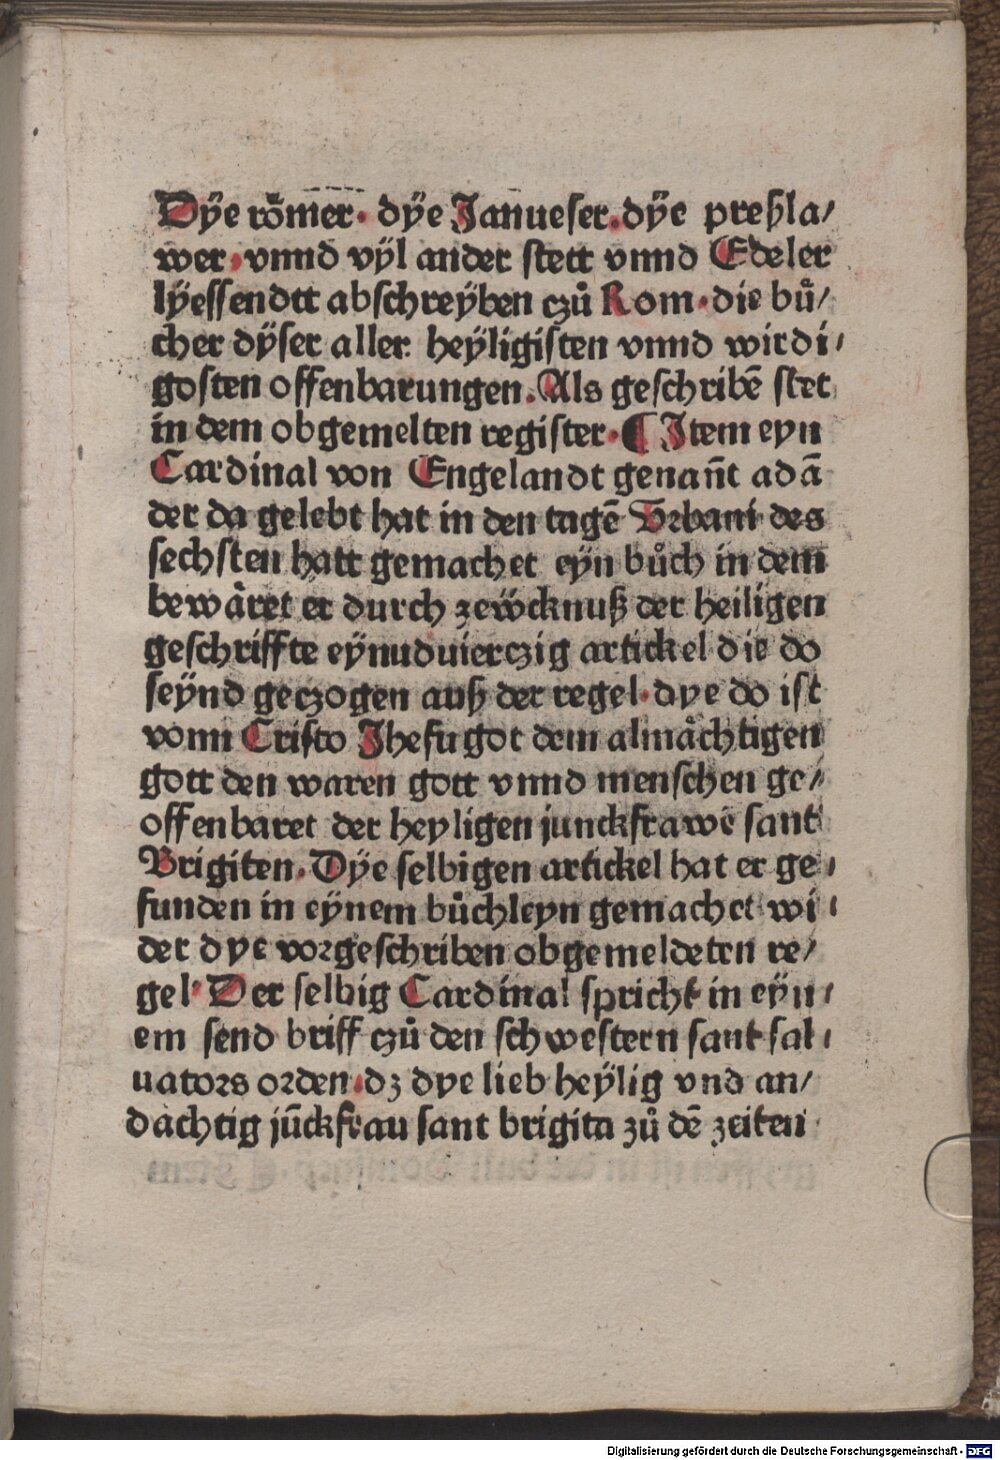 Dÿe römer. dÿe Janueser. dÿe preßla/
wer, vnnd vÿl ander stett vnnd Edeler
lÿessendtt abschreÿben czů Rom. die bů/
cher dÿser aller heÿligisten vnnd wirdi/
gosten offenbarungen. Als geschribē stet
in dem obgemelten register. ¶ Item eyn
Cardinal von Engelandt genañt adā
der da gelebt hat in den tagē Vrbani des
sechsten hatt gemachet eÿn bůch in dem
bewåret er durch zewcknuß der heiligen
geschriffte eÿnuduierczig artickel die do
seÿnd geczogen auß der regel. dye do ist
vonn Cristo Jhesu got dem almåchtigen
gott den waren gott vnnd menschen ge/
offenbaret der heyligen junckfrawē sant
Brigiten. Dÿe selbigen artickel hat er ge/
funden in eÿnem bůchleyn gemachet wi/
der dye vorgeschriben obgemeldeten re/
gel. Der selbig Cardinal spricht in eÿn/
em send briff czů den schwestern sant sal/
uators orden. dz dye lieb heÿlig vnd an/
dachtig jūckfrau sant brigita zů dē zeiten
Digitalisierung gefördert durch die Deutsche Forschungsgemeinschaft - DFG